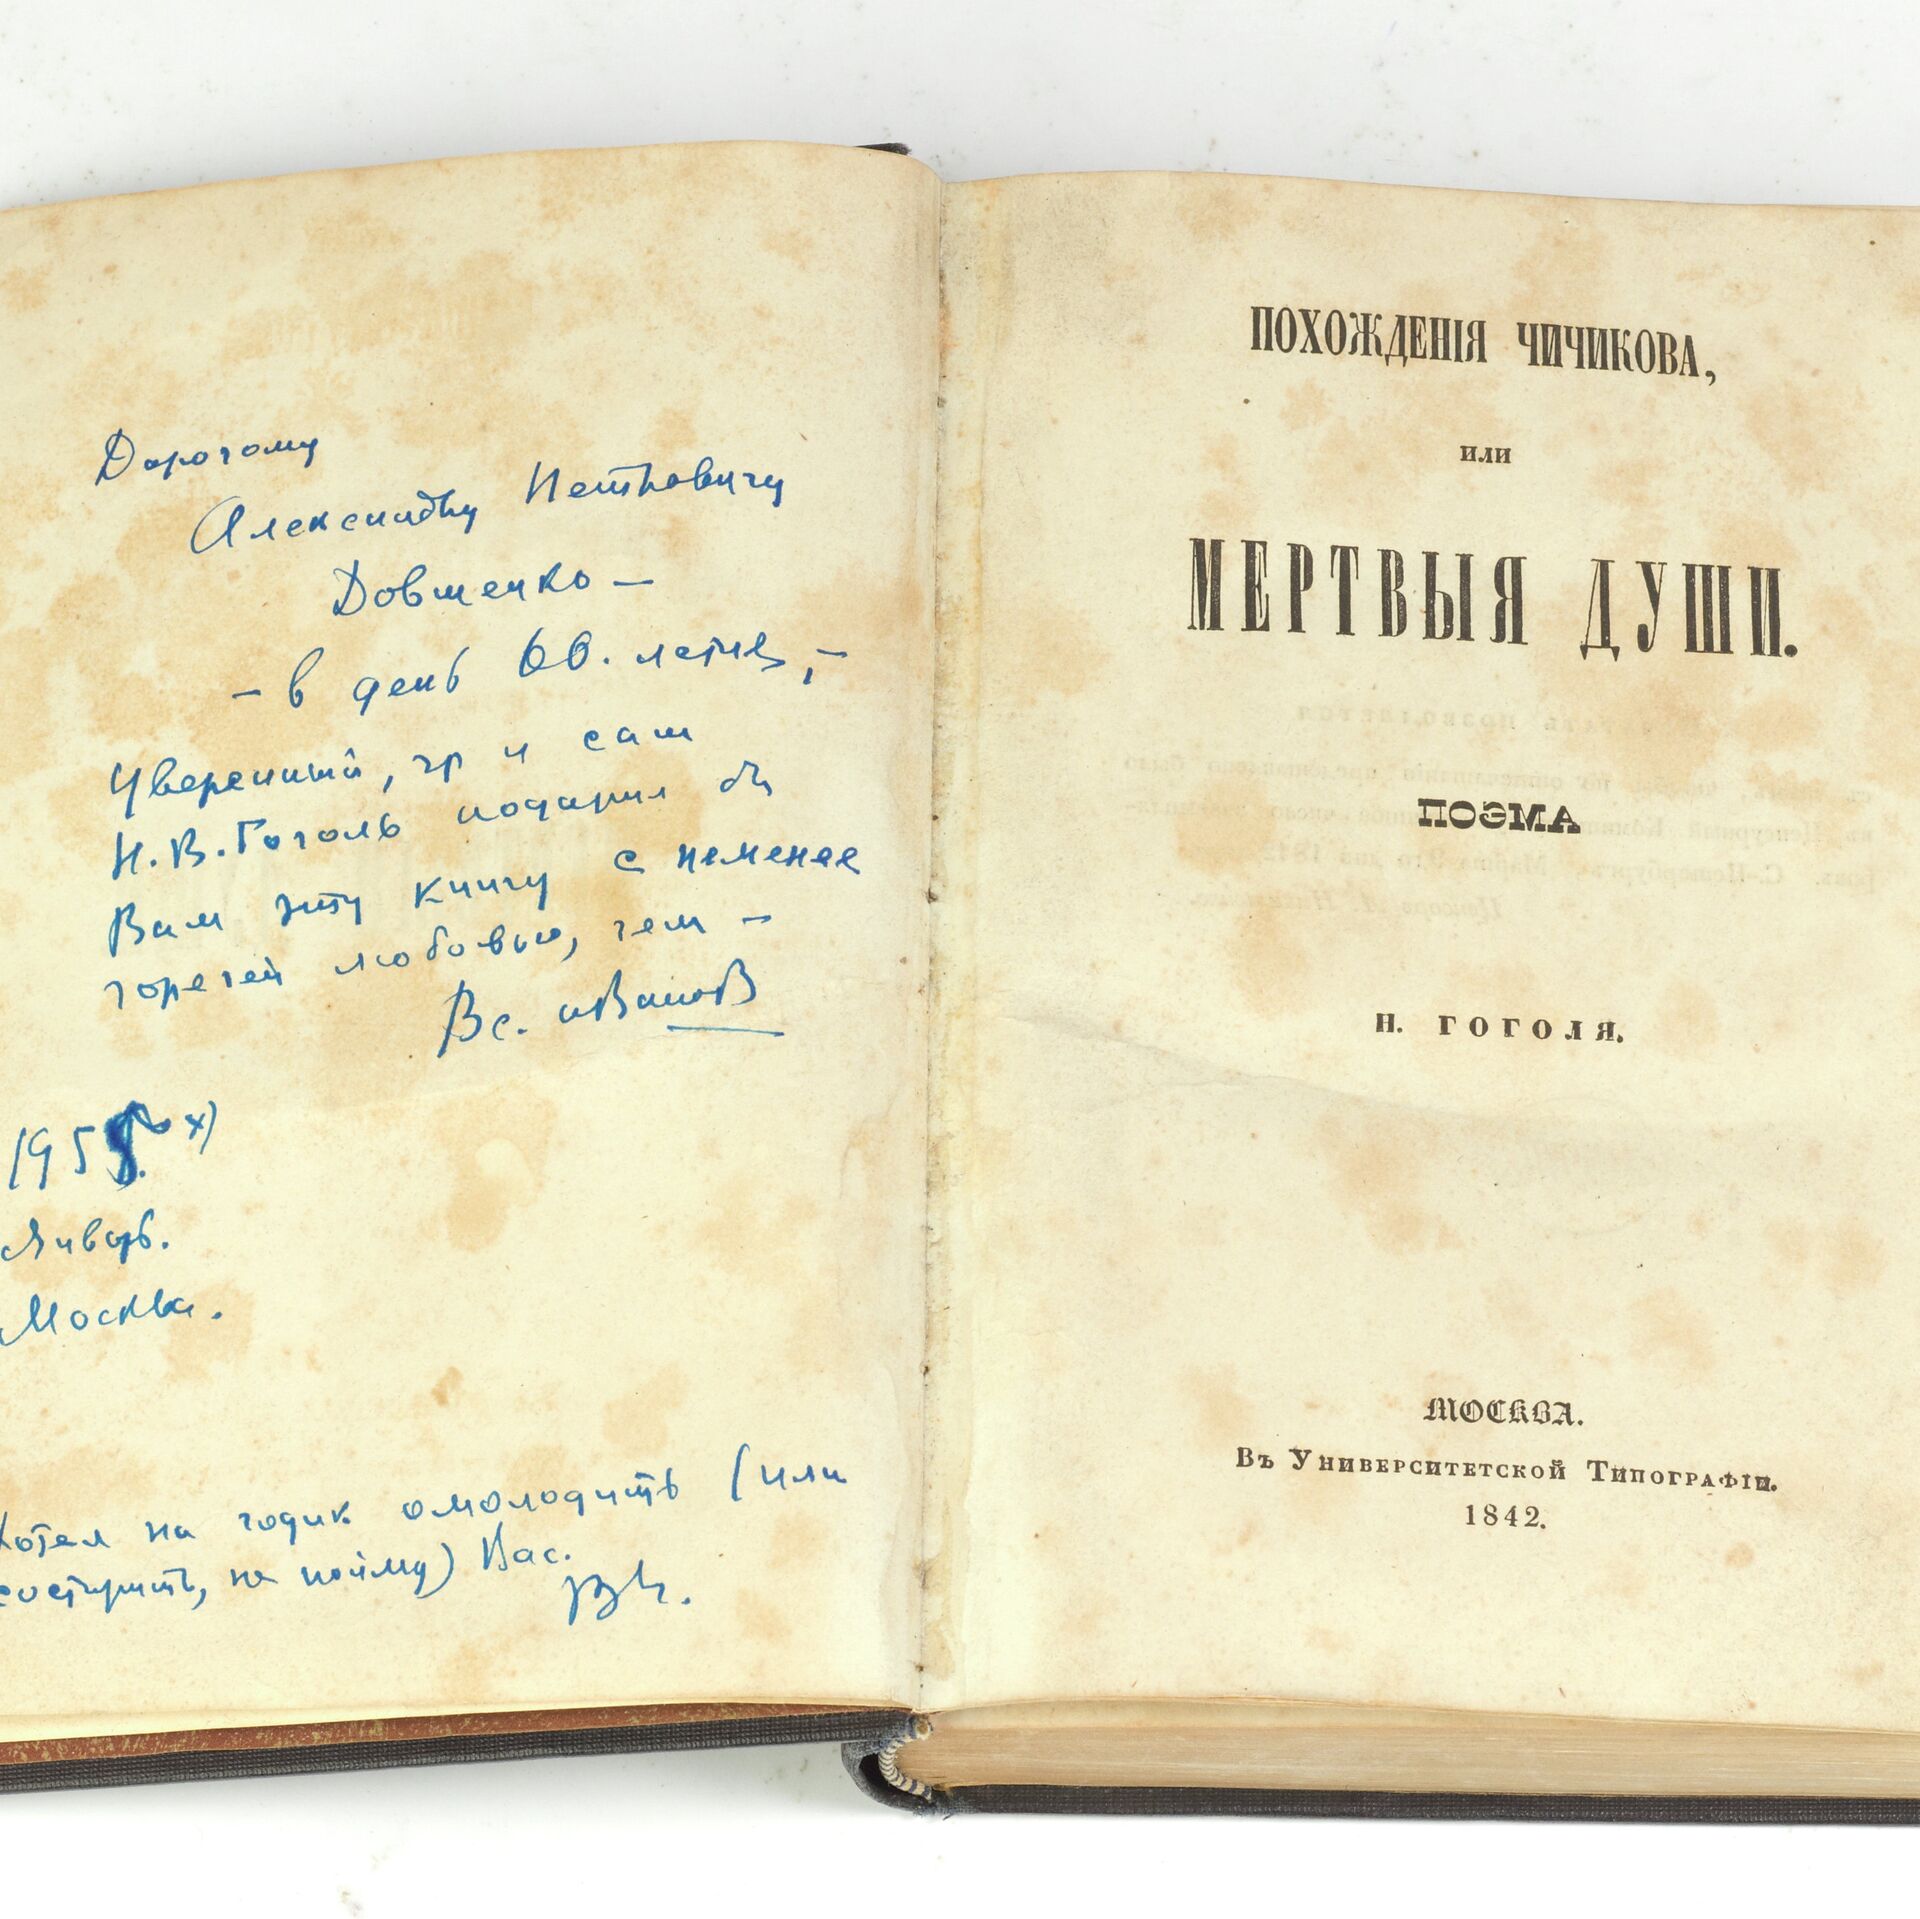 Дорогому
Александру Петровичу
Довженко —
— в день 60. летия, —
Уверенный, что и сам
Н. В. Гоголь подарил бы
Вам эту книгу с неменее
горячей любовью, чем —
Вс. Иванов
195 х)
Январь.
Москва.
Хотел на годик омолодить (или
состарить, не пойму) Вас.
ПОХОЖДЕНІЯ ЧИЧИКОВА,
ИЛИ
МЕРТВЫЯ ДУШИ.
ПОЭМА
Н. ГОГОЛЯ.
МОСКВА.
Въ Университетской Типографіи.
1842.